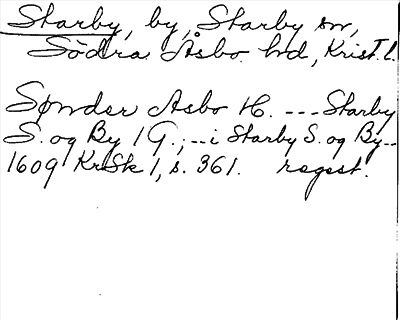 Starby, by, Starby sn,
Södra Åsbo hd, Krist. l.
Sønder Asbo H. --- Starby
S. og By 1 G.; -- i Starby S. og By --
1609 KrSk 1, s. 361. regest.